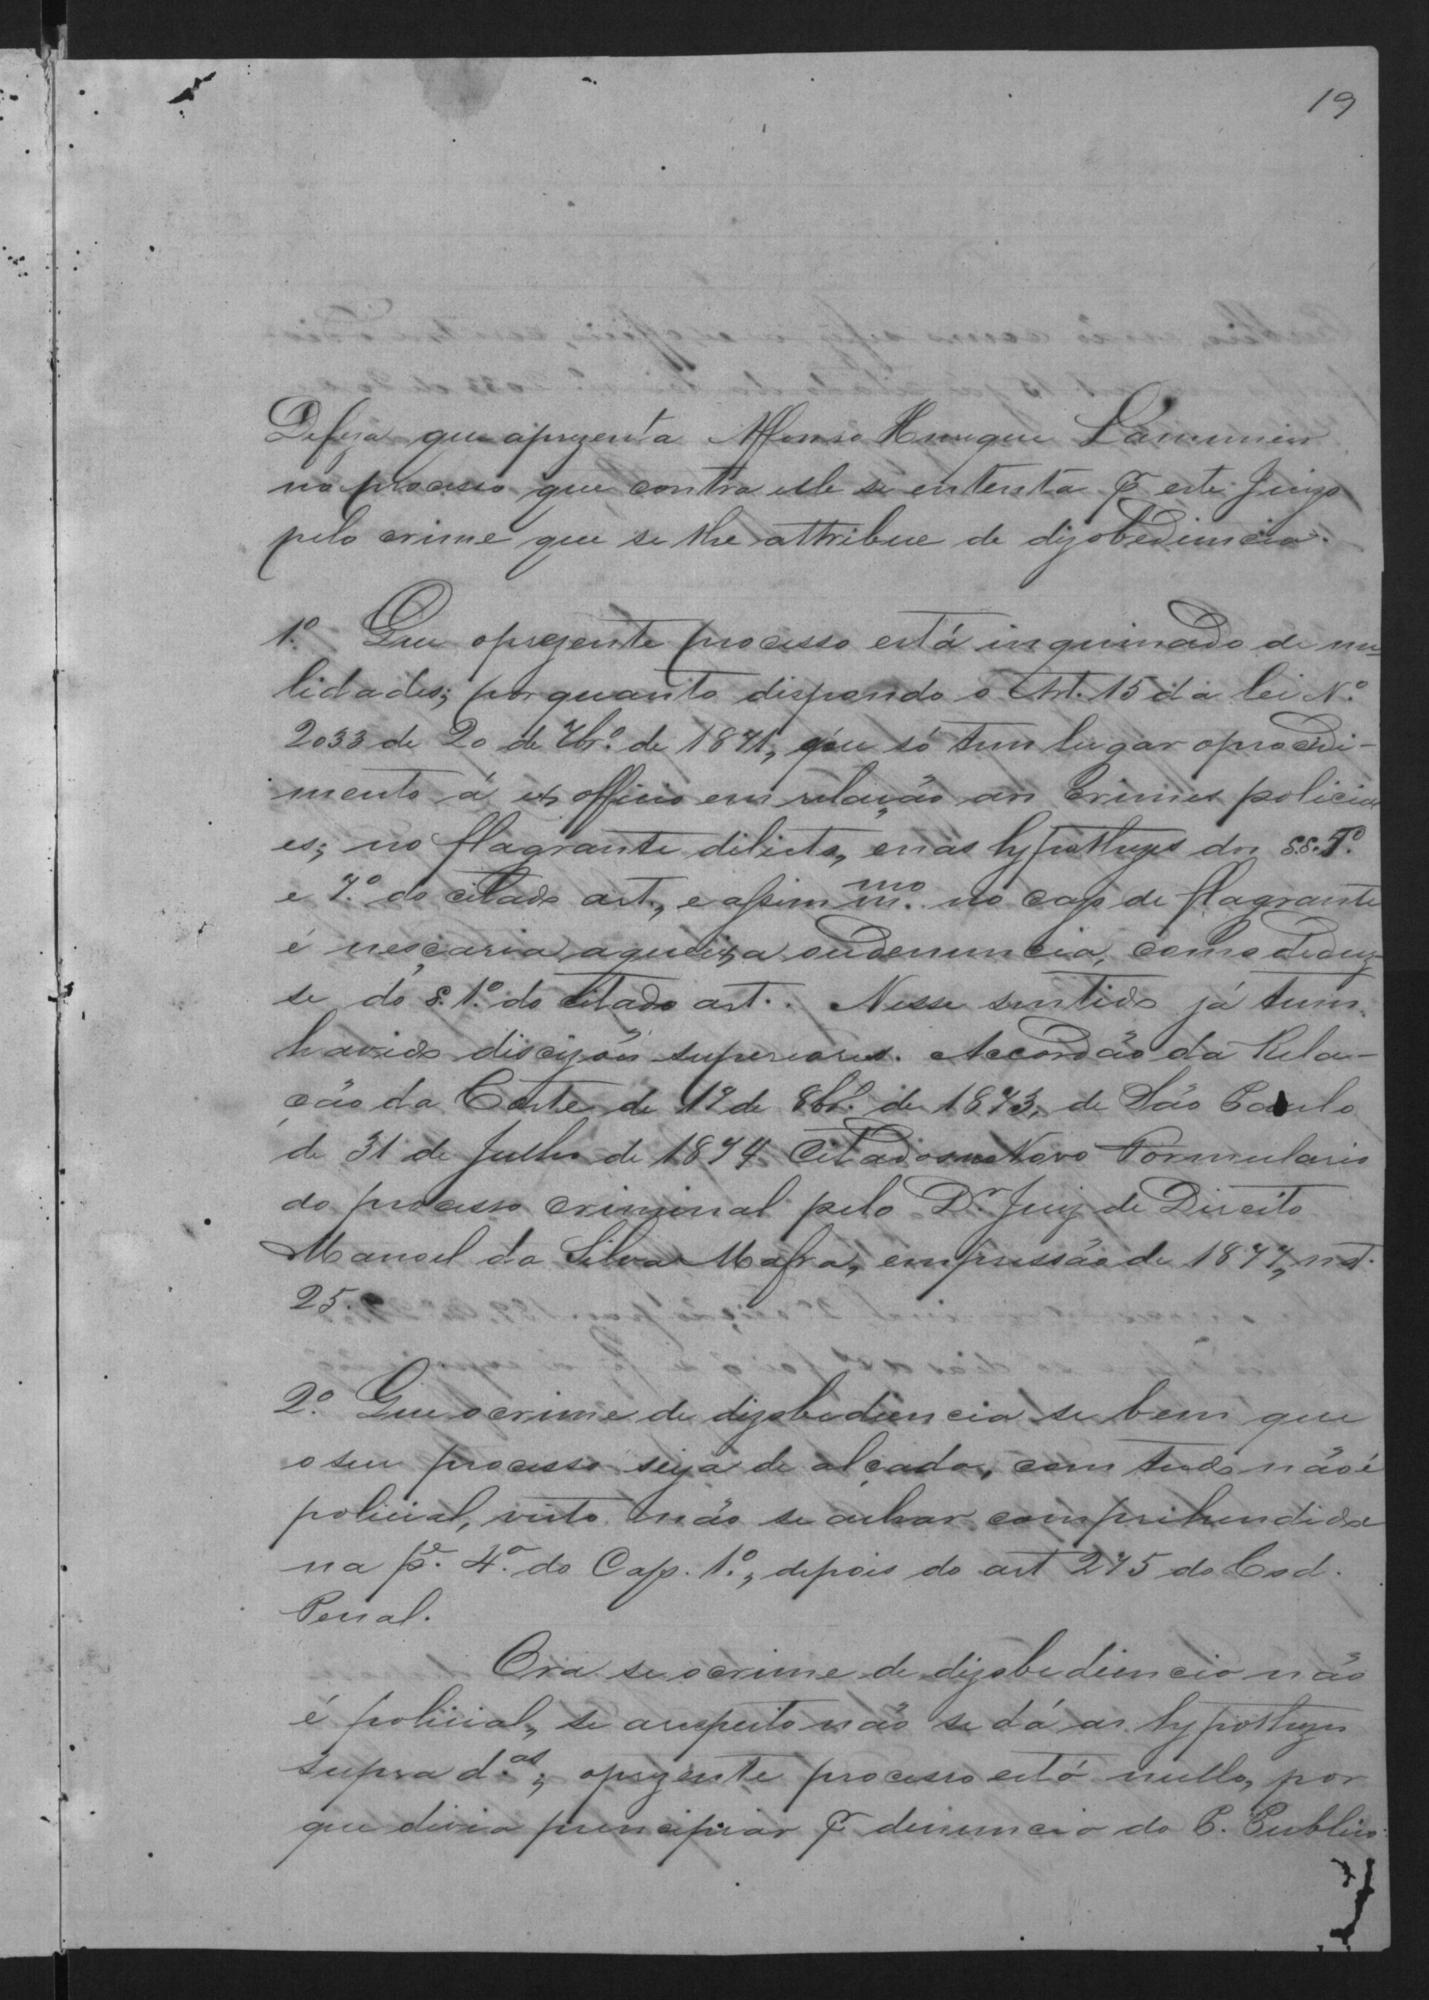 19
Defeza que aprezenta Affonso Henrique
no processo que contra elle se ententa pr este Juizo
pelo crime que se lhe attribue de dizobediencia.
1.º Que oprezente processo está inquinado de nu-
lidades; porquanto dispondo o Art. 15 da lei N.º
2033 de 20 de 7br.º de 1871, que só tem lugar oprocedi-
mento á ex officio em relação aos Crimes polici
es; no flagrante dilicto, e nas hypothezes dos §.§. 5.º
e 7.º do citado art., e assim m.mo no cazo de flagrante
é nescaria aqueixa ou denuncia, como deduz-
se do §. 1.º do citado art. . Nesse sentido já tem
havido discizões superiores. Accordão da Rela-
ção da Corte de 17 de 8br.º de 1873, de São Paulo
de 31 de Julho de 1874 Citados no Novo Formulario
do processo criminal pelo Dr. Juiz de Direito
Manoel da Silva Mafra, empressão de 1877, not.
25.
2.º Que o crime de dizobediencia se bem que
o seu processo seja de alçada, com tudo não é
policial, visto não se achar comprihendido
na p.e 4.ª do Cap. 1.º, depois do art 275 do Cod.
Penal.
Ora se o crime de dizobediencia não
é policial, se arespeito não se dá as hypothezes
supra d.as; oprezente processo está nullo, por
que divia principiar pr denuncia do P. Publico